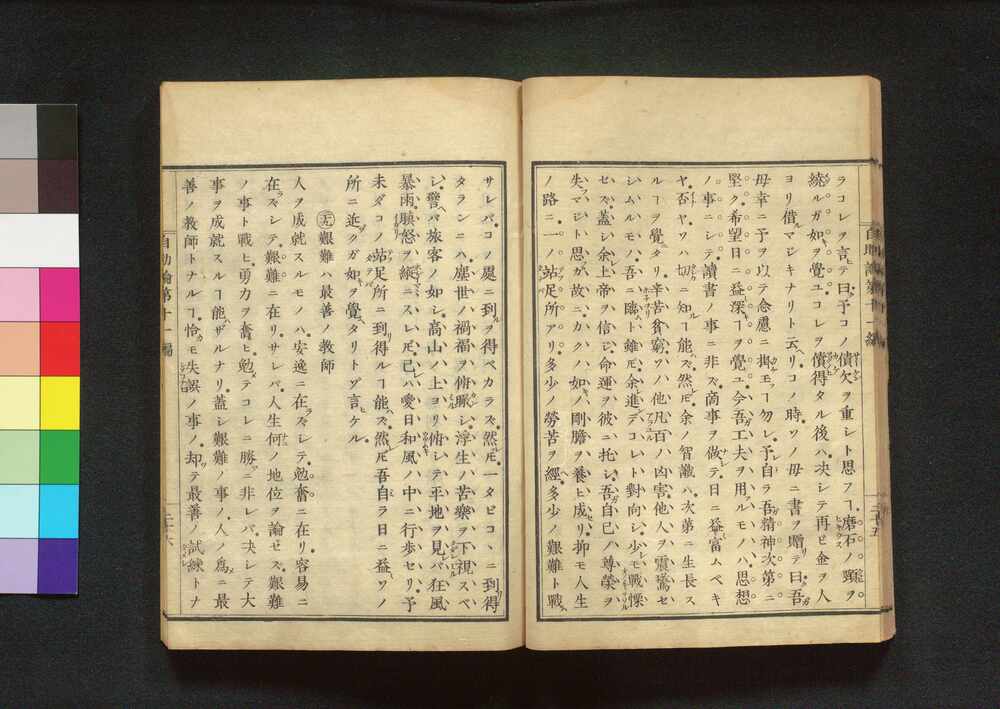 ラコレヲ言テ曰予コノ債欠ヲ重シト思フヿ磨石ノ頸ヲ
繞ルガ如ヲ覺ユコレヲ償得タル後ハ決シテ再ビ金ヲ人
ヨリ借マジキナリト云リコノ時ソノ母ニ書ヲ贈テ曰吾
母幸ニ予ヲ以テ念慮ニ掛モフヿ勿レ予自ラ吾精神次第ニ
堅ク希望日ニ益深ヿヲ覺ユ今吾工夫ヲ用ルモノハ思想
ノ事ニシテ讀書ノ事ニ非ズ啇事ヲ做テ日ニ益富ムベキ
ヤ否ヤハ切ニ知ヿ能ズ然𪜈余ノ智識ハ次第ニ生長ス
ルヿヲ覺タリ辛苦貧窮ソノ他凡百ノ凶害他人ヲ震驚セ
シムルモノ吾ニ臨ト雖𪜈余進デコレト對向シ少モ戰慄
セズ蓋シ余上帝ヲ信ジ命運ヲ彼ニ托シ吾自己ノ尊榮ヲ
失マジト思ガ故ニカクノ如キ剛膽ヲ養ヒ成リ抑モ人生
ノ路ニ一ノ站足所アリ多少ノ勞苦ヲ經多少ノ艱難ト戰
自助論第十一編
二十五
サレバコノ處ニ到ヲ得ベカラズ然𪜈一タビコヽニ到得
タランニハ塵世ノ禍福ヲ俯瞰シ浮生ノ苦樂ヲ下視スベ
シ譬バ旅客ノ如シ高山ノ上ヨリ俯シテ平地ヲ見バ狂風
暴雨膜怒ヲ縦ニスレ𪜈己ハ愛日和風ノ中ニ行歩セリ予
未ダコノ站足所ニ到リ得ルヿ能ズ然𪜈吾自ラ日ニ益ソノ
所ニ近クガ如ヲ覺タリトゾ言ケル
艱難ハ最善ノ教師
人ヲ成就スルモノハ安逸ニ在ズシテ勉奮ニ在リ容易ニ
在ズシテ艱難ニ在リサレバ人生何ノ地位ヲ論ゼズ艱難
ノ事ト戰ヒ勇力ヲ奮ヒ勉テコレニ勝ニ非レバ決シテ大
事ヲ成就スルヿ能ザルナリ蓋シ艱難ノ事ノ人ノ爲ニ最
善ノ教師トナルヿ恰モ失誤ノ事ノ却テ最善ノ試練トナ
自助論第十一編
二十六